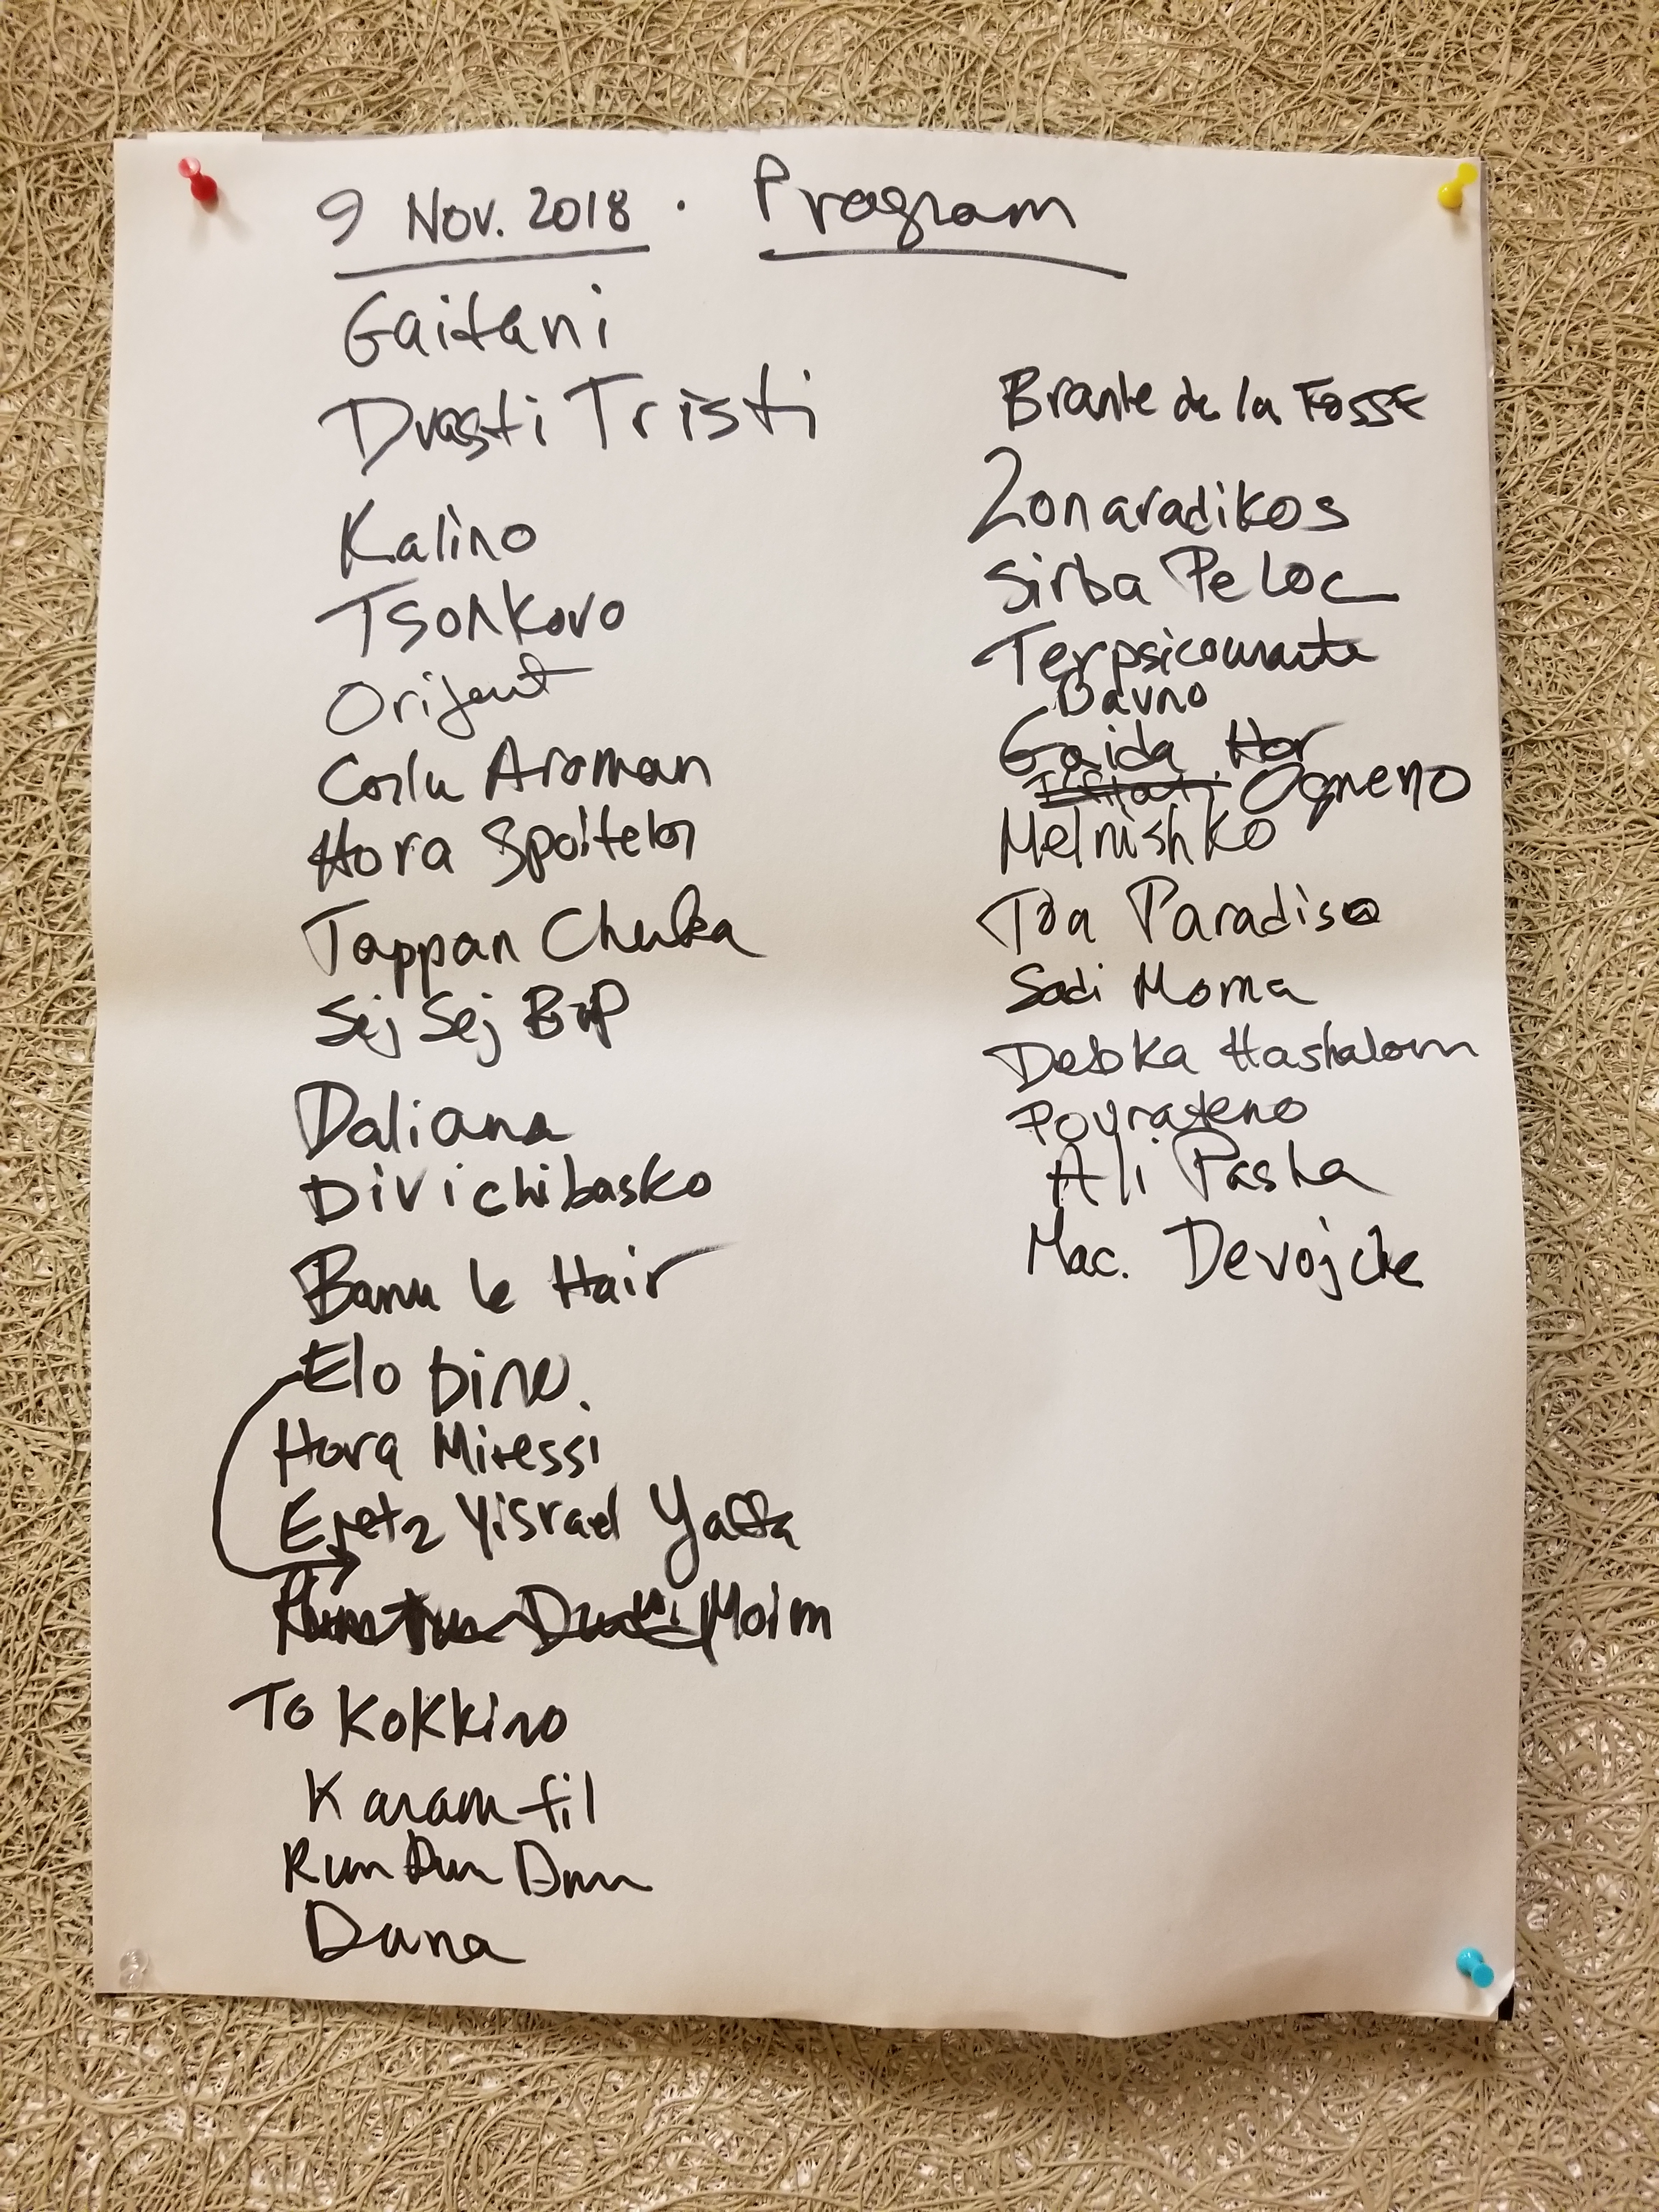 9 Nov. 2018 . Program
Gaitani
Drasti Tristi
Kalino
Tsonkovo
Orijent
Corlu Aroman
Hora Spoitelor
Tappan Chuka
Sej Sej Bop
Daliana
Divichibasko
Banu le Hair
Elo Dino.
Hora Miressi
Eretz Yisrael Yaffa
Moim
To Kokkino
Karamfil
Rum Dum Dum
Dana
Branle de la Fosse
Zonaradikos
Sirba Pe Loc
Terpsicourante
Davno
Gaida Hor
Ogneno
Melnishko
Toa Paradiso
Sadi Moma
Debka Hashalom
Povrateno
Ali Pasha
Mac. Devojche